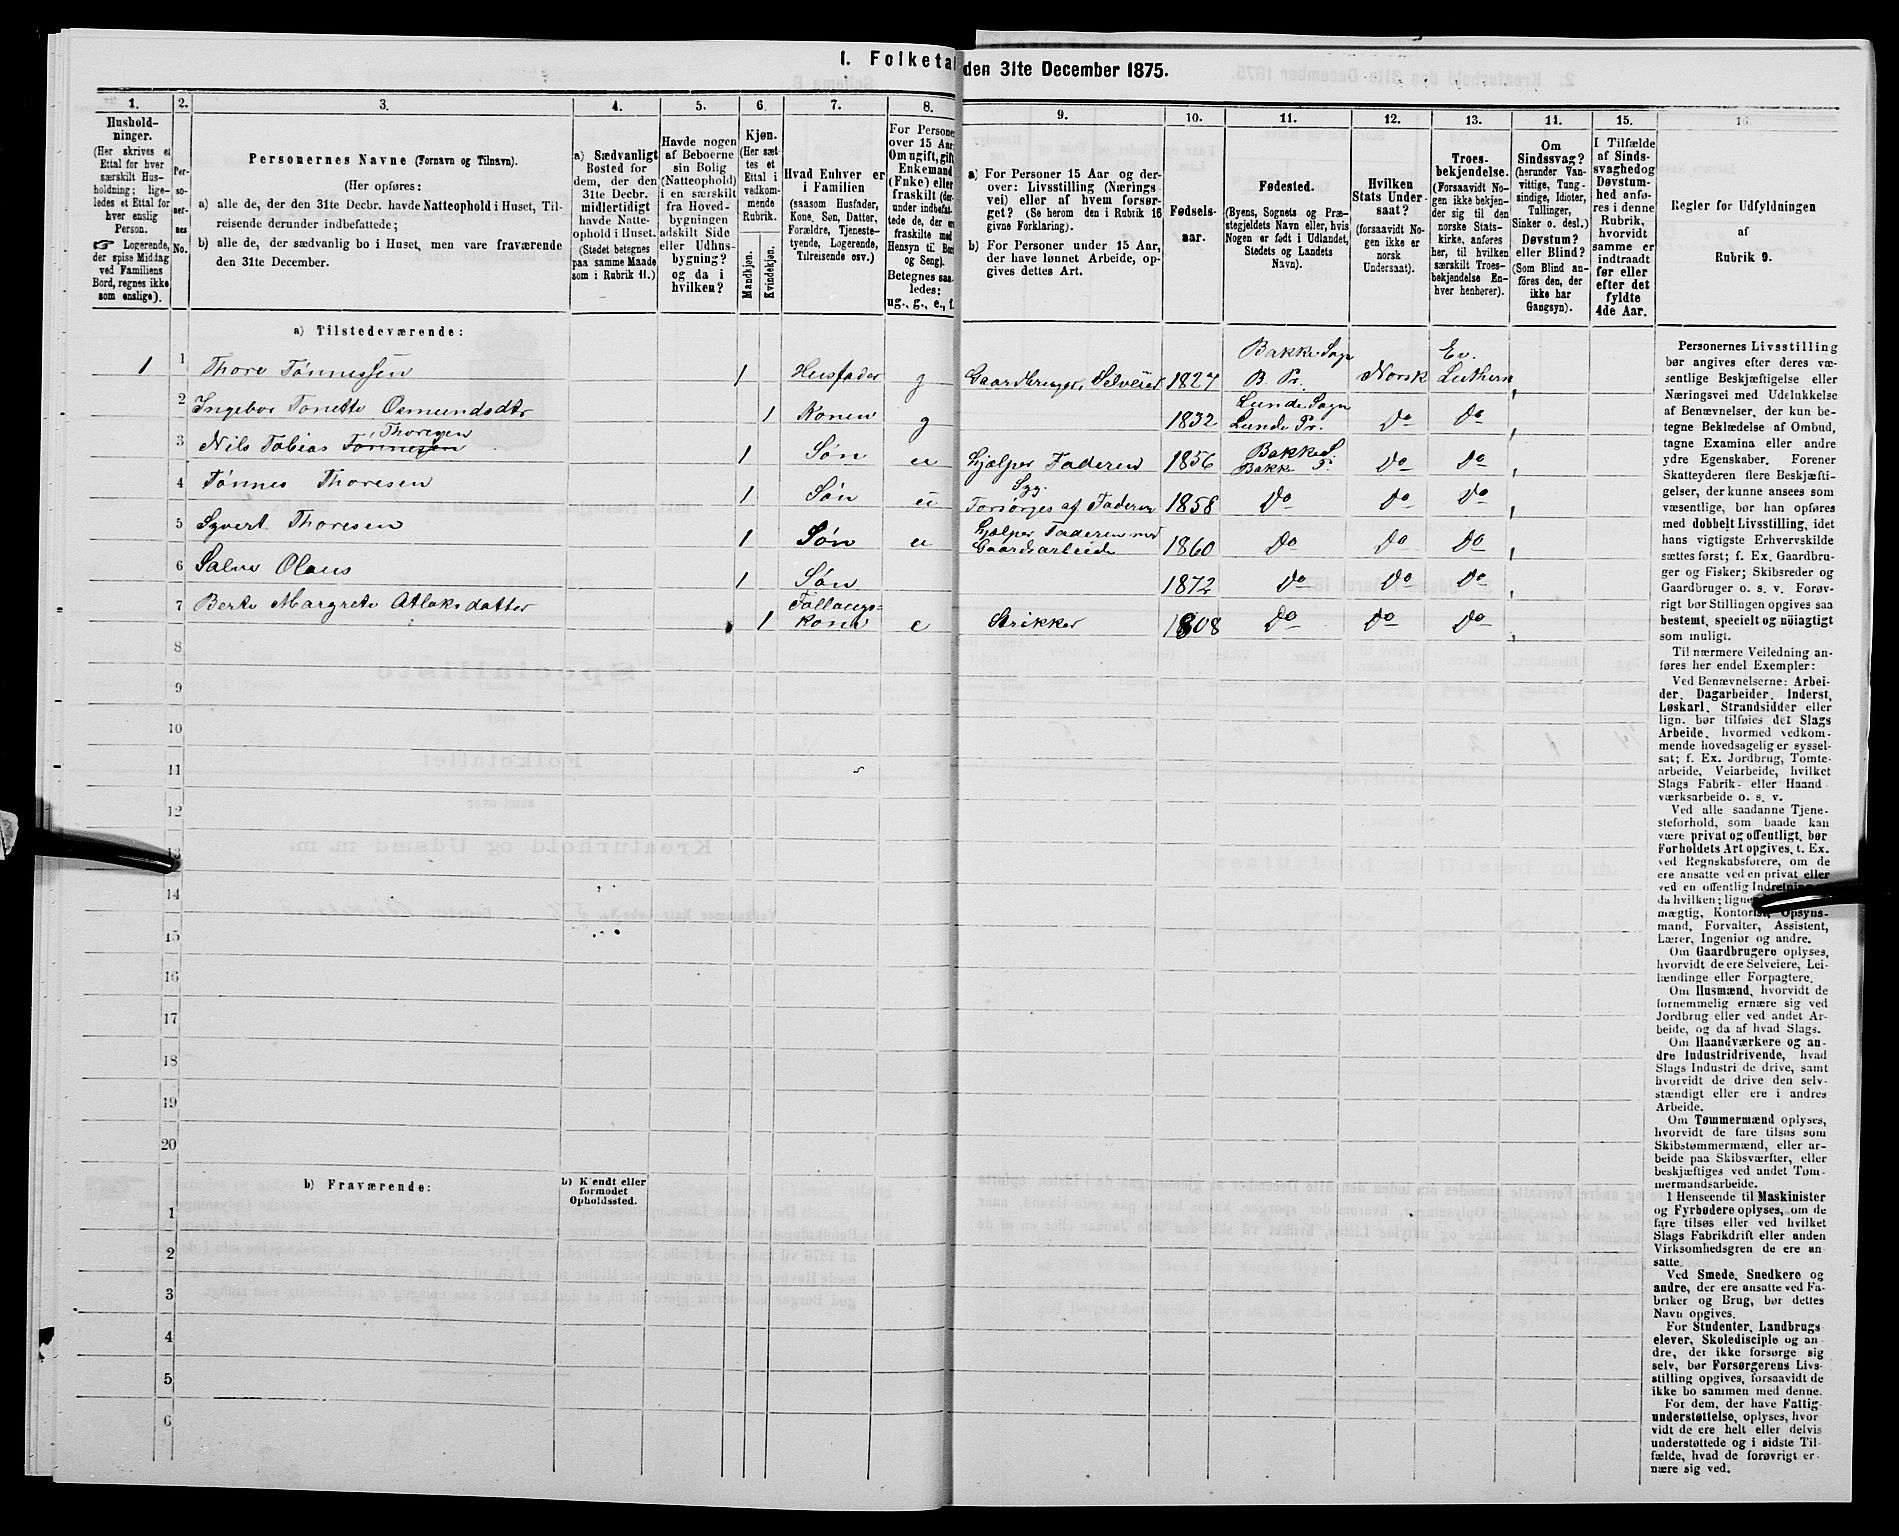 I. Folketal den 31te December 1875.
1.
Hushold-
ninger.
(Her skrives et
Ettal for hver
særskilt Hus-
holdning; lige-
ledes et Ettal for
hver enslig
Person.
☞ Logerende,
der spise Middag
ved Familiens
Bord, regnes ikke
som enslige).
2.
Per-
so-
ner-
nes
No.
3.
Personernes Navne (Fornavn og Tilnavn).
(Her opføres:
a) alle de, der den 31te Decbr. havde Natteophold i Huset, Til-
reisende derunder indbefattede;
b) alle de, der sædvanlig bo i Huset, men vare fraværende
den 31te December.
4.
a) Sædvanligt
Bosted for
dem, der den
31te Decbr.
midlertidigt
havde Natte-
ophold i Huset.
(Stedet betegnes
paa samme Maade
som i Rubrik 11.)
5.
Havde nogen
af Beboerne
sin Bolig
(Natteophold)
i en særskilt
fra Hoved-
bygningen
adskilt Side
eller Udhus-
bygning?
og da i
hvilken?
6.
Kjøn.
(Her sæt-
tes et
Ettal i
vedkom-
mende
Rubrik.
Mandkjøn.
Kvindekjøn.
7.
Hvad Enhver er
i Familien
(saasom Husfader,
Kone, Søn, Datter,
Forældre, Tjeneste-
tyende, Logerende,
Tilreisende osv.)
8.
For Personer
over 15 Aar:
Om ugift, gift,
Enkemand
(Enke) eller
fraskilt (der-
under indbefat-
tede de, der ere
fraskilte med
Hensyn til Bord
og Seng).
Betegnes saa-
ledes:
ug., g., e., f.
9.
a) For Personer 15 Aar og der-
over: Livsstilling (Nærings-
vei) eller af hvem forsør-
get? (Se herom den i Rubrik 16
givne Forklaring).
b) For Personer under 15 Aar,
der have lønnet Arbeide, op-
gives dettes Art.
10.
Fødsels-
aar.
11.
Fødested.
(Byens, Sognets og Præ-
stegjeldets Navn eller, hvis
Nogen er født i Udlandet,
Stedets og Landets
Navn).
12.
Hvilken
Stats Under-
saat?
(forsaavidt No-
gen ikke er
norsk
Undersaat).
13.
Troes-
bekjendelse.
(Forsaavidt No-
gen ikke bekjen-
der sig til den
norske Stats-
kirke, anføres
her, til hvilken
særskilt Troes-
bekjendelse En-
hver henhører).
14.
Om
Sindssvag?
(herunder Van-
vittige, Tung-
sindige, Idioter,
Tullinger,
Sinker o. desl.)
Døvstum?
eller Blind?
(Som Blind an-
føres den, der
ikke har
Gangsyn).
15.
I Tilfælde
af Sinds-
svaghed og
Døvstum-
hed anfø-
res i denne
Rubrik,
hvorvidt
samme er
indtraadt
før eller
efter det
fyldte
4de Aar.
16.
Regler for Udfyldningen
af
Rubrik 9.
a) Tilstedeværende:
1 1 Thore Tønnessen 1 Husfader g Gaardbruger, Selveier 1827 Bakke Sogn B. Pr. Norsk Ev. Luthersk
2 Ingebor Tonette Osmundsdtr 1 Konen g 1832 Lunde Sogn Lunde Pr. Do Do
3 Nils Tobias Tønnessen Thoresen 1 Søn u Hjælper Faderen 1856 Bakke S. Bakke P. Do Do
4 Tønnes Thoresen 1 Søn u Syg. Forsørges af Faderen 1858 Do Do Do
5 Syvert Thoresen 1 Søn u Hjælper Faderen med Gaardsarbeide 1860 Do Do Do
6 Salve Olaus 1 Søn 1872 Do Do Do
7 Berte Margrete Atlaksdatter 1 Føllougs-kone e Strikker 1808 Do Do Do
8
9
10
11
12
13
14
15
16
17
18
19
20
b) Fraværende:
b) Kjendt eller
formodet
Opholdssted.
1
2
3
4
5
6
Personernes Livsstilling
bør angives efter deres væ-
sentlige Beskjæftigelse eller
Næringsvei med Udelukkelse
af Benævnelser, der kun be-
tegne Beklædelse af Ombud,
tagne Examina eller andre
ydre Egenskaber. Forener
Skatteyderen flere Beskjæfti-
gelser, der kunne ansees som
væsentlige, bør han opføres
med dobbelt Livsstilling, idet
hans vigtigste Erhvervskilde
sættes først; f. Ex. Gaardbru-
ger og Fisker; Skibsreder og
Gaardbruger o. s. v. Forøv-
rigt bør Stillingen opgives saa
bestemt, specielt og nöiagtigt
som muligt.
Til nærmere Veiledning an-
føres her endel Exempler:
Ved Benævnelserne: Arbei-
der, Dagarbeider, Inderst,
Løskarl, Strandsidder eller
lign. bør tilføies det Slags
Arbeide, hvormed vedkom-
mende hovedsagelig er syssel-
sat; f. Ex. Jordbrug, Tomte-
arbeide, Veiarbeide, hvilket
Slags Fabrik- eller Haand
værksarbeide o. s. v.
Ved alle saadanne Tjene-
steforhold, som baade kan
være privat og offentligt, bør
Forholdets Art opgives, t. Ex.
ved Regnskabsførere, om de
ere ansatte ved en privat eller
ved en offentlig Indretning
da hvilken; lign
mægtig, Kontorist, Opsyns-
mand, Forvalter, Assistent,
Lærer, Ingeniør og andre.
Om Gaardbrugere oplyses,
hvorvidt de ere Selveiere, Lei-
lændinge eller Forpagtere.
Om Husmænd, hvorvidt de
fornemmelig ernære sig ved
Jordbrug eller ved andet Ar-
beide, og da af hvad Slags.
Om Haandværkere og an-
dre Industridrivende, hvad
Slags Industri de drive, samt
hvorvidt de drive den selv-
stændigt eller ere i andres
Arbeide.
Om Tømmermænd oplyses,
hvorvidt de fare tilsøs som
Skibstømmermænd, eller ar-
beide paa Skibsværfter, eller
beskjæftiges ved andet Tøm-
mermandsarbeide.
I Henseende til Maskinister
og Fyrbødere oplyses, om de
fare tilsøs eller ved hvilket
Slags Fabrikdrift eller anden
Virksomhedsgren de ere an-
satte.
Ved Smede, Snedkere og
andre, der ere ansatte ved Fa-
briker og Brug, bør dettes
Navn opgives.
For Studenter, Landbrugs
elever, Skoledisciple og an-
dre, der ikke forsørge sig
selv, bør Forsørgerens Livs-
stilling opgives, forsaavidt de
ikke bo sammen med denne.
For dem, der have Fattig-
understøttelse, oplyses, hvor
vidt de ere helt eller delvis
understøttede og i sidste Til-
fælde, hvad de forøvrigt er-
nære sig ved.